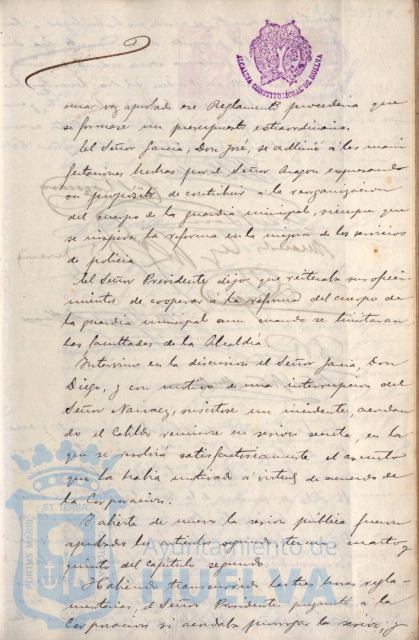 ALCALDIA CONSTITUCIONAL DE HUELVA
una vez aprobado ese Reglamento procederia que
se formase un presupuesto extraordinario.
El Señor Garcia, Don José, se adhirió á las mani
festaciones hechas por el Señor Aragon expresando
su propósito de contribuir á la reorganizacion
del cuerpo de la guardia municipal, siempre que
se inspire la reforma en la mejora de los servicios
de policia
El Señor Presidente dijo que reiteraba sus ofreci
mientos de cooperar á la reforma del cuerpo de
la guardia municipal aun cuando se limitaran
las facultades de la Alcaldia
Intervino en la discusion el Señor Garcia, Don
Diego, y con motivo de una interrupcion del
Señor Narvaez, suscitose un incidente, acordan
do el Cabildo reunirse en sesion secreta, en la
que se resolvió satisfactoriamente el asunto
que la habia motivado á virtud de acuerdo de
la Corporacion.
Y abierta de nuevo la sesion pública fueron
aprobados los articulos segundo, tercero, cuarto y
quinto del capitulo segundo.
Habiendo transcurrido las tres horas regla-
mentarias, el Señor Presidente preguntó á la
Corporacion si acordaba prorrogar la sesion; y
PORTUS MARIS ET TERRAE
Ayuntamiento de
HUELVA